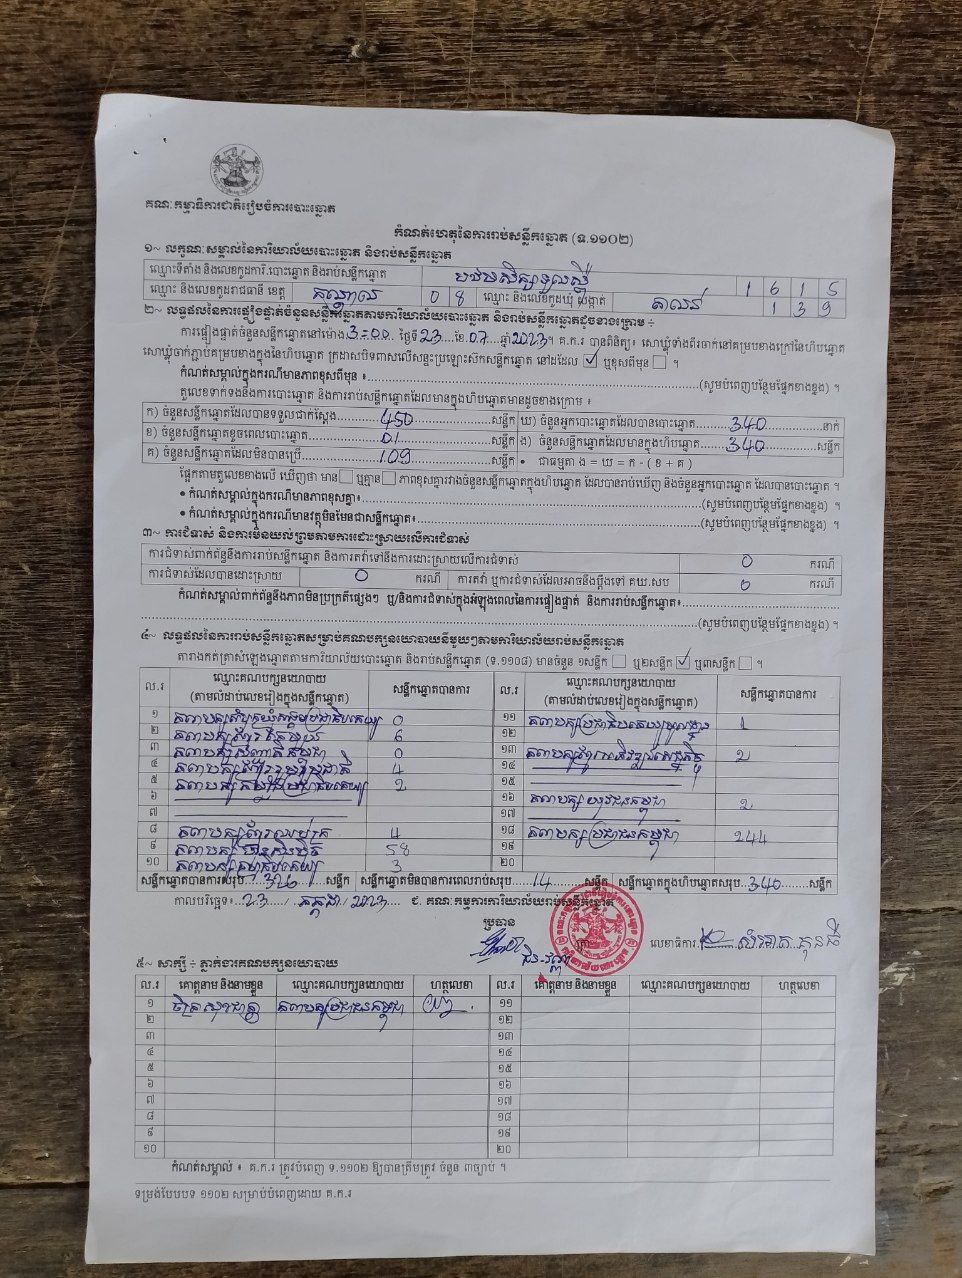 គណៈកម្មាធិការជាតិរៀបចំការបោះឆ្នោត
កំណត់ហេតុនៃការរាប់សន្លឹកឆ្នោត (ទ.១១០២)
១~ លក្ខណៈសម្គាល់នៃការិយាល័យបោះឆ្នោត និងរាប់សន្លឹកឆ្នោត
ឈ្មោះទីតាំង និងលេខកូដការិ.បោះឆ្នោត និងរាប់សន្លឹកឆ្នោត 1 6 1 5
ឈ្មោះ និងលេខកូដរាជធានី ខេត្ត កណ្តាល 0 8 ឈ្មោះ និងលេខកូដឃុំ សង្កាត់ 1 3 9
២~ លទ្ធផលនៃការផ្ទៀងផ្ទាត់ចំនួនសន្លឹកឆ្នោតតាមការិយាល័យបោះឆ្នោត និងរាប់សន្លឹកឆ្នោតដូចខាងក្រោម ÷
ការផ្ទៀងផ្ទាត់ចំនួនសន្លឹកឆ្នោតនៅម៉ោង 3=00 ថ្ងៃទី 23 ខែ 07 ឆ្នាំ ២០២៣។ គ.ក.រ បានពិនិត្យ៖ សោឃ្លុំទាំងពីរចាក់នៅគម្របខាងក្រៅនៃហិបឆ្នោត
សោឃ្លុំចាក់ភ្ជាប់គម្របខាងក្នុងនៃហិបឆ្នោត ក្រដាសបិទពាសលើសន្ទះប្រឡោះសិកសន្លឹកឆ្នោត នៅដដែល ☑ ឬខុសពីមុន ☐ ។
កំណត់សម្គាល់ក្នុងករណីមានភាពខុសពីមុន ៖ (សូមបំពេញបន្ថែមផ្នែកខាងខ្នង) ។
តួលេខទាក់ទងនឹងការបោះឆ្នោត និងការរាប់សន្លឹកឆ្នោតដែលមានក្នុងហិបឆ្នោតមានដូចខាងក្រោម ៖
ក) ចំនួនសន្លឹកឆ្នោតដែលបានទទួលជាក់ស្តែង 450 សន្លឹក ឃ) ចំនួនអ្នកបោះឆ្នោតដែលបានបោះឆ្នោត 340 នាក់
ខ) ចំនួនសន្លឹកឆ្នោតខូចពេលបោះឆ្នោត 01 សន្លឹក ង) ចំនួនសន្លឹកឆ្នោតដែលមានក្នុងហិបឆ្នោត 340 សន្លឹក
គ) ចំនួនសន្លឹកឆ្នោតដែលមិនបានប្រើ 109 សន្លឹក • ជាធម្មតា ង = ឃ = ក - ( ខ + គ )
ផ្អែកតាមតួលេខខាងលើ ឃើញថា មាន ☐ ឬគ្មាន ☐ ភាពខុសគ្នារវាងចំនួនសន្លឹកឆ្នោតក្នុងហិបឆ្នោត ដែលបានរាប់ឃើញ និងចំនួនអ្នកបោះឆ្នោត ដែលបានបោះឆ្នោត ។
• កំណត់សម្គាល់ក្នុងករណីមានភាពខុសគ្នា៖ (សូមបំពេញបន្ថែមផ្នែកខាងខ្នង) ។
• កំណត់សម្គាល់ក្នុងករណីមានវត្ថុមិនមែនជាសន្លឹកឆ្នោត៖ (សូមបំពេញបន្ថែមផ្នែកខាងខ្នង) ។
៣~ ការជំទាស់ និងការមិនយល់ព្រមតាមការដោះស្រាយលើការជំទាស់
ការជំទាស់ពាក់ព័ន្ធនឹងការរាប់សន្លឹកឆ្នោត និងការតវ៉ាទៅនឹងការដោះស្រាយលើការជំទាស់ 0 ករណី
ការជំទាស់ដែលបានដោះស្រាយ 0 ករណី ការតវ៉ា ឬការជំទាស់ដែលអាចនឹងប្តឹងទៅ គឃ.សប 0 ករណី
កំណត់សម្គាល់ពាក់ព័ន្ធនឹងភាពមិនប្រក្រតីផ្សេងៗ ឬ/និងការជំទាស់ក្នុងអំឡុងពេលនៃការផ្ទៀងផ្ទាត់ និងការរាប់សន្លឹកឆ្នោត៖
(សូមបំពេញបន្ថែមផ្នែកខាងខ្នង) ។
៤~ លទ្ធផលនៃការរាប់សន្លឹកឆ្នោតសម្រាប់គណបក្សនយោបាយនីមួយៗតាមការិយាល័យរាប់សន្លឹកឆ្នោត
តារាងកត់ត្រាសំឡេងឆ្នោតតាមការិយាល័យបោះឆ្នោត និងរាប់សន្លឹកឆ្នោត (ទ.១១០៨) មានចំនួន ១សន្លឹក ☐ ឬ២សន្លឹក ☑ ឬ៣សន្លឹក ☐ ។
ល.រ ឈ្មោះគណបក្សនយោបាយ (តាមលំដាប់លេខរៀងក្នុងសន្លឹកឆ្នោត) សន្លឹកឆ្នោតបានការ ល.រ ឈ្មោះគណបក្សនយោបាយ (តាមលំដាប់លេខរៀងក្នុងសន្លឹកឆ្នោត) សន្លឹកឆ្នោតបានការ
១ គណបក្ស 0 ១១ គណបក្សប្រជាធិបតេយ្យមូលដ្ឋាន 1
២ គណបក្ស 6 ១២
៣ គណបក្ស 0 ១៣ គណបក្ស 2
៤ គណបក្ស 4 ១៤
៥ គណបក្ស 2 ១៥
៦ ១៦ គណបក្សយុវជនកម្ពុជា 2
៧ ១៧
៨ គណបក្ស 4 ១៨ គណបក្សប្រជាជនកម្ពុជា 244
៩ គណបក្ស 58 ១៩
១០ គណបក្ស 3 ២០
សន្លឹកឆ្នោតបានការសរុប 326 សន្លឹក សន្លឹកឆ្នោតមិនបានការពេលរាប់សរុប 14 សន្លឹក សន្លឹកឆ្នោតក្នុងហិបឆ្នោតសរុប 340 សន្លឹក
កាលបរិច្ឆេទ៖ 23 / កក្កដា / ២០២៣ ជ. គណៈកម្មការការិយាល័យរាប់សន្លឹកឆ្នោត
ប្រធាន
លេខាធិការ
៥~ សាក្សី ÷ ភ្នាក់ងារគណបក្សនយោបាយ
ល.រ គោត្តនាម និងនាមខ្លួន ឈ្មោះគណបក្សនយោបាយ ហត្ថលេខា ល.រ គោត្តនាម និងនាមខ្លួន ឈ្មោះគណបក្សនយោបាយ ហត្ថលេខា
១ គណបក្សប្រជាជនកម្ពុជា ១១
២ ១២
៣ ១៣
៤ ១៤
៥ ១៥
៦ ១៦
៧ ១៧
៨ ១៨
៩ ១៩
១០ ២០
កំណត់សម្គាល់ ៖ គ.ក.រ ត្រូវបំពេញ ទ.១១០២ ឱ្យបានត្រឹមត្រូវ ចំនួន ៣ច្បាប់ ។
ទម្រង់បែបបទ ១១០២ សម្រាប់បំពេញដោយ គ.ក.រ